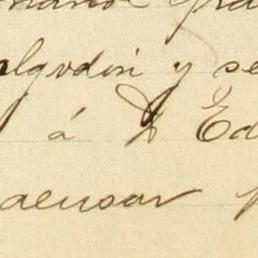 algodón y se
á D Ed
acusar